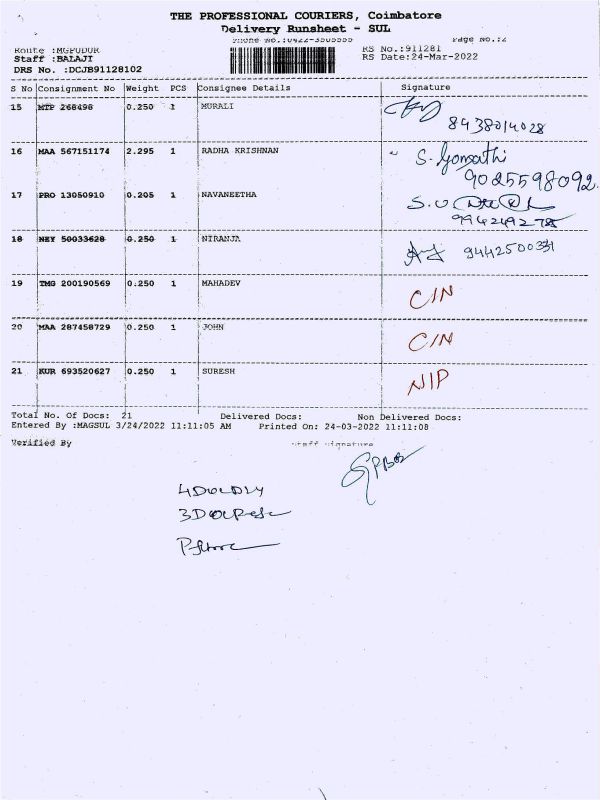 THE PROFESSIONAL COURIERS, Coimbatore
Delivery Runsheet - SUL
Page No.:2
Route :MGPUDUR RS No.:911281
Staff :BALAJI RS Date:24-Mar-2022
DRS No. :DCJB91128102
S No Consignment No Weight PCS Consignee Details Signature
15 MTP 268498 0.250 1 MURALI
8438014028
16 MAA 567151174 2.295 1 RADHA KRISHNAN S. Gomathi
9025598092.
17 PRO 13050910 0.205 1 NAVANEETHA
18 NEY 50033628 0.250 1 NIRANJA 9442500331
19 TMG 200190569 0.250 1 MAHADEV C/N
20 MAA 287458729 0.250 1 JOHN C/N
21 KUR 693520627 0.250 1 SURESH N/P
Total No. Of Docs: 21 Delivered Docs: Non Delivered Docs:
Entered By :MAGSUL 3/24/2022 11:11:05 AM Printed On: 24-03-2022 11:11:08
Verified By Staff Signature